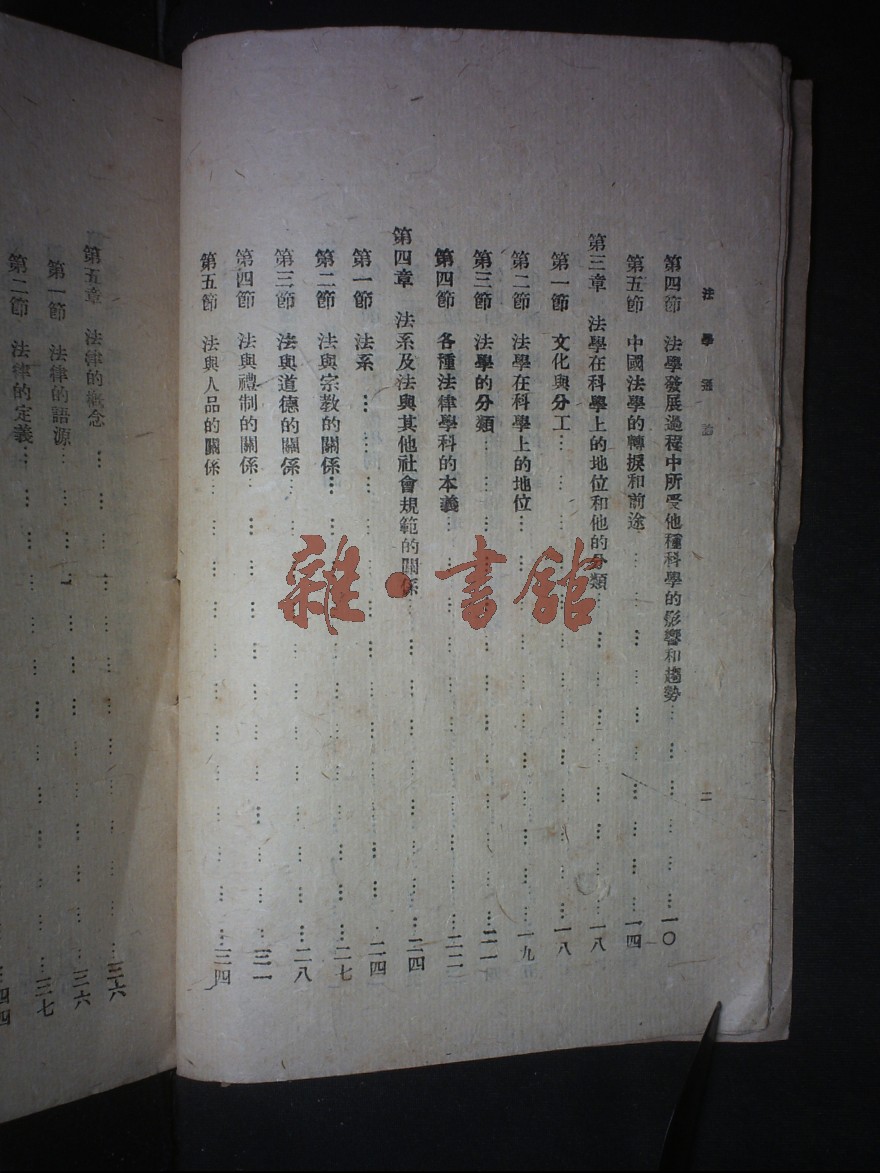 法學通論
二
第四節 法學發展過程中所受他種科學的影響和趨勢……一〇
第五節 中國法學的轉捩和前途……一四
第三章 法學在科學上的地位和他的分類……一八
第一節 文化與分工……一八
第二節 法學在科學上的地位……一九
第三節 法學的分類……二一
第四節 各種法律學科的本義……二二
第四章 法系及法與其他社會規範的關係……二四
第一節 法系……二四
第二節 法與宗教的關係……二七
第三節 法與道德的關係……二八
第四節 法與禮制的關係……三一
第五節 法與人品的關係……三四
第五章 法律的概念……三六
第一節 法律的語源……三六
第二節 法律的定義……三七
四四
雜·書館